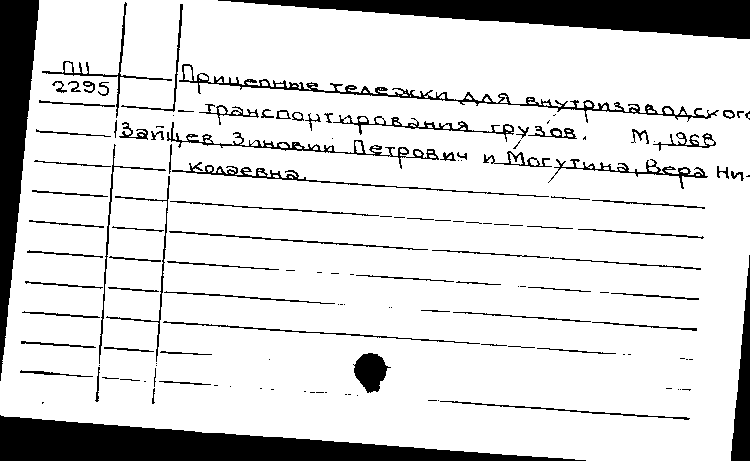 П11
2295
Прицепные тележки для внутризаводского
транспортирования грузов. М., 1968
Зайцев, Зиновий Петрович и Могутина, Вера Ни-
колаевна.